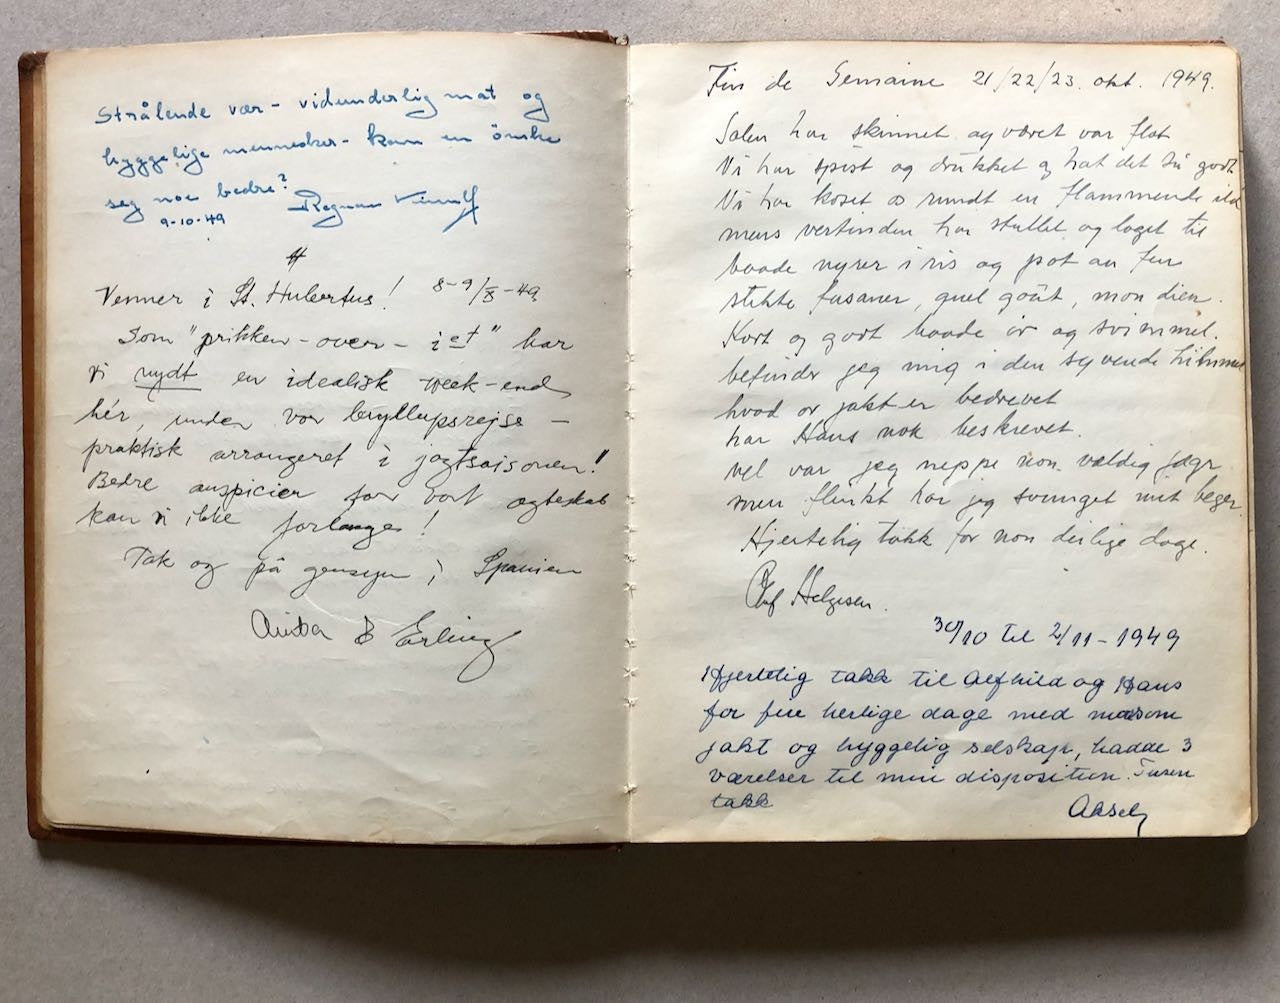 Strålende vær - vidunderlig mat og
hyggelige mennesker - kan en önske
seg noe bedre?
9-10-49 Ragnar
Venner i St. Hubertus! 8-9/X-49
Som "prikken-over-iet" har
vi nydt en idealisk week-end
hér, under vor bryllupsrejse -
praktisk arrangeret i jagtsaisonen!
Bedre auspicier for vort ægteskab
kan vi ikke forlange!
Tak og på gensyn i Spanien
Anita & Erling
Fin de Semaine 21/22/23. okt. 1949.
Solen har skinnet og været var flot
Vi har spist og drukket og hat det så godt
Vi har koset os rundt en flammende ild
mens vertinden har stullet og laget til
baade nyrer i ris og pot au feu
stekte fasaner, quel goût, mon dieu.
Kort og godt baade ör og svimmel.
befinder jeg mig i den syvende himmel
hvad or jakt er bedrevet
har Hans nok beskrevet.
vel var jeg neppe non vældig jæger
men flinkt har jeg svunget mit beger.
Hjertelig takk for non deilige dage.
Helgesen.
30/10 til 2/11-1949
Hjertelig takk til Alfhild og Hans
for fire herlige dage med morsom
jakt og hyggelig selskap, hadde 3
værelser til min disposition. Tusen
takk
Aksel